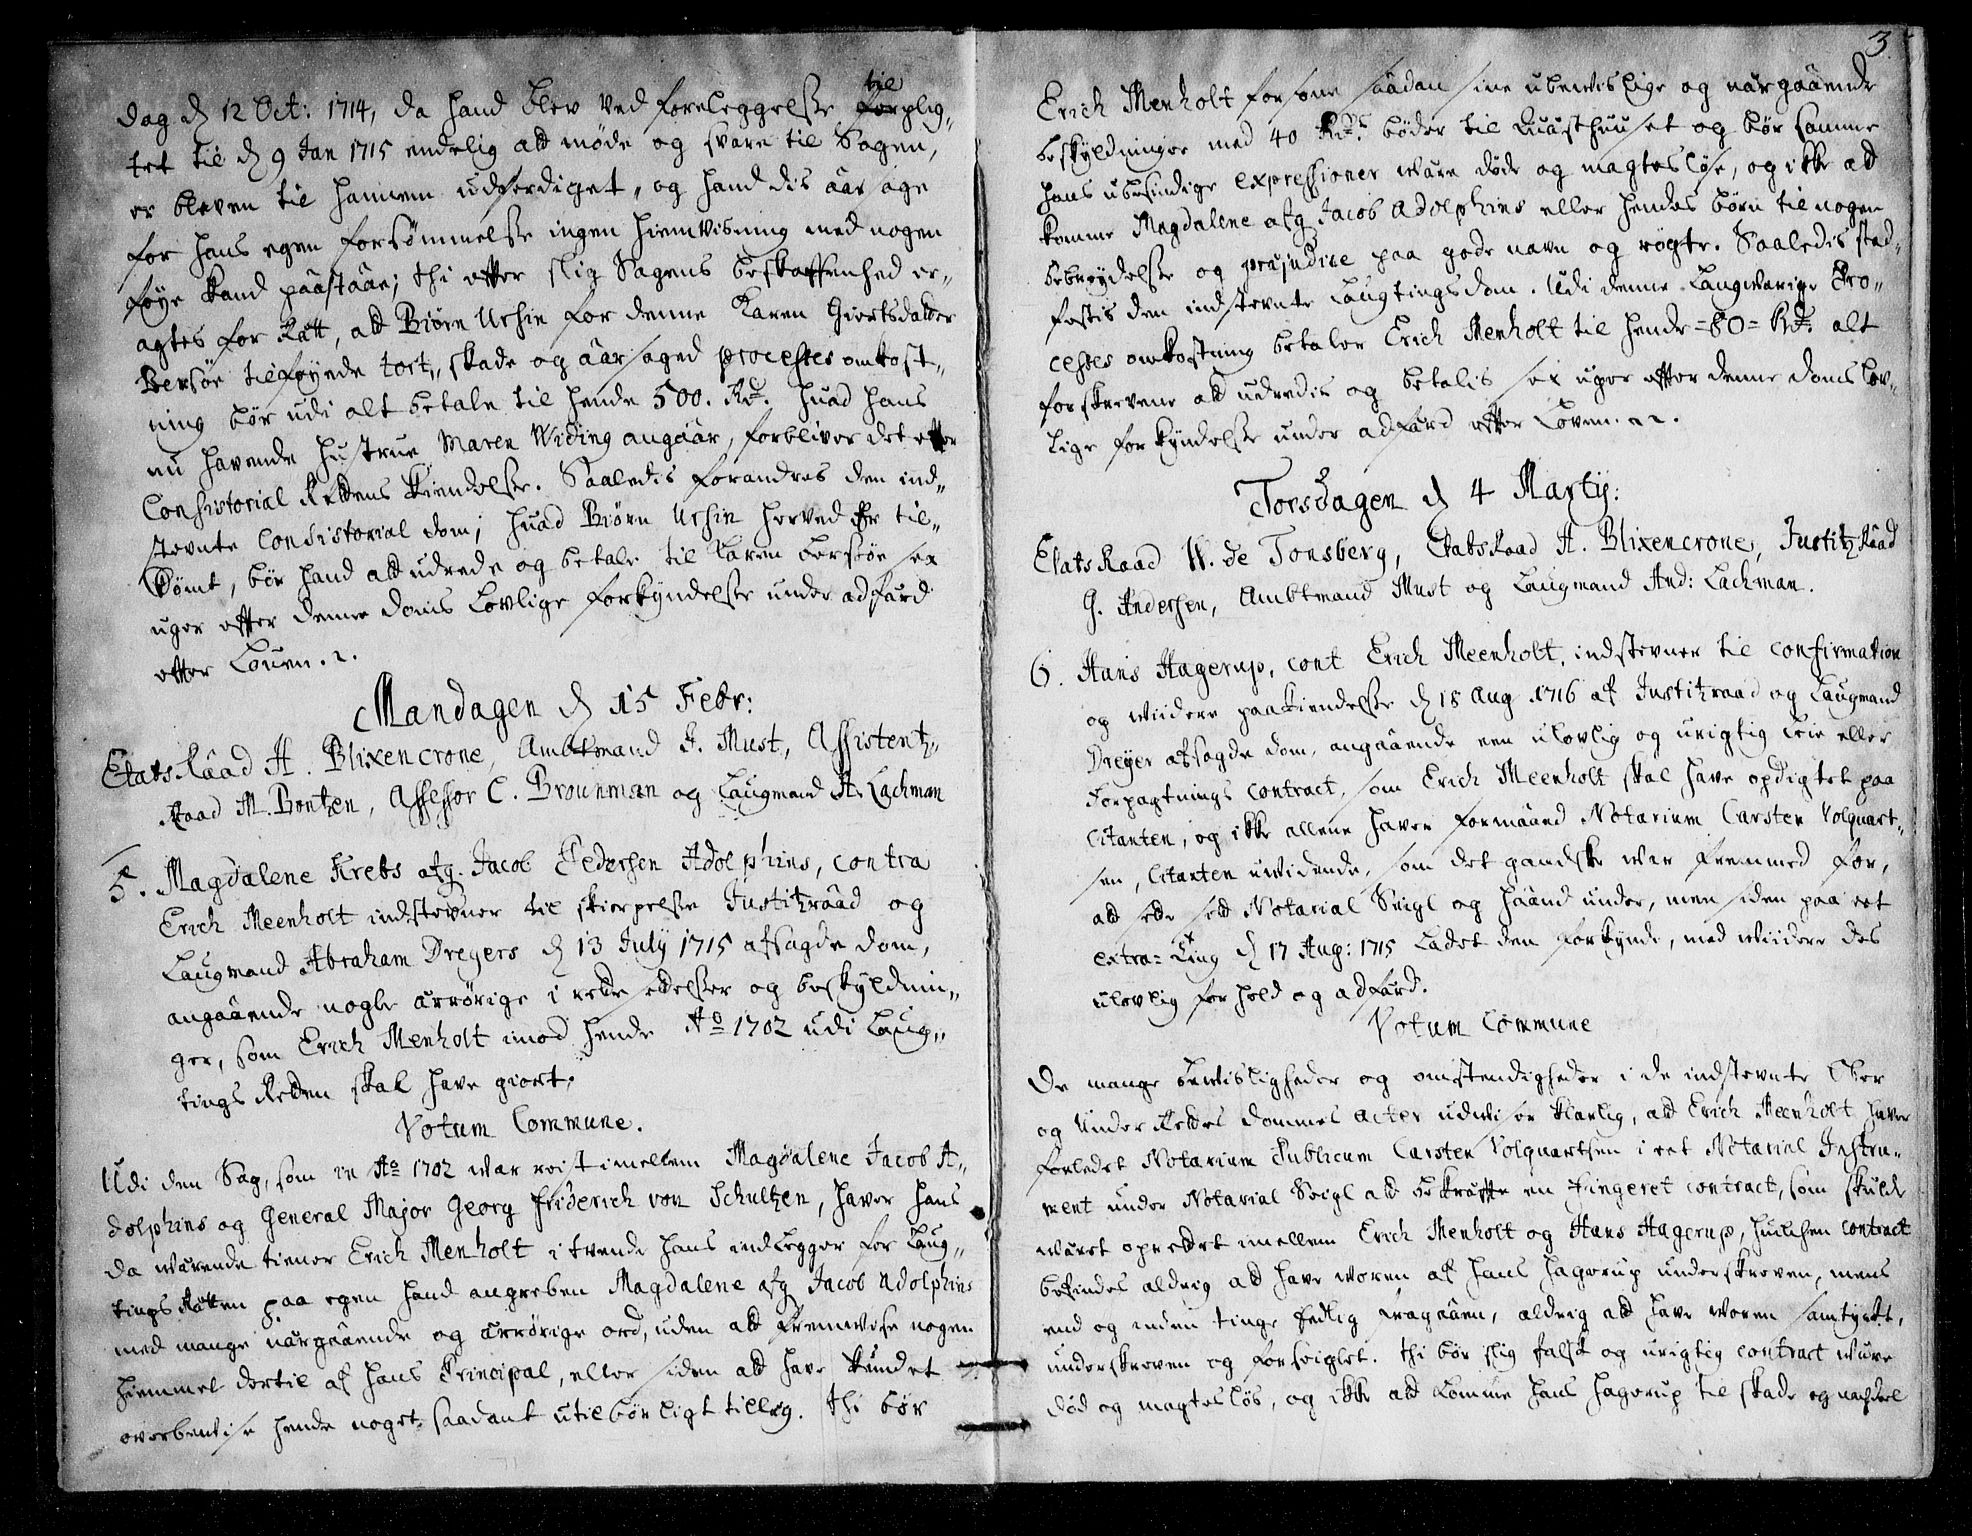 dag d 12 Oct: 1714, da hand blev ved foreleggelse til forplig„
tet til d 9 Jan 1715 endelig att møde og svare til Sagen,
er bleven til hannem udferdiget, og hand dis aarsage
for hans egen forsømmelse ingen hiemvisning med nogen
føye kand påastaae; thi efter slig Sagens beskaffenhed er„
agtes for Rætt, att Biørn Ursin for denne Karen Giertsdatter
Bersøe tilføyede tort„ skade og aarsaged processes omkost„
ning bør udi alt betale til hende 500. Rdr. huad hans
nu havende hustrue Maren Widing angaar, forbliver det efter
Consistorial Rettens kiendelse. Saaledis forandres den ind„
stevnte Consistorial dom; huad Biørn Ursin herved er til„
dømt, bør hand att udrede og betale til Karen Bersøe sex
uger efter denne doms Lovlige forkyndelse under adfærd
efter Loven. 2.
Mandagen d 15 Febr:
Etats Raad A. Blixencrone, Ambtmand J. Must, Assistentz„
Raad M. Bentzen, Assessor C. Brounman og Laugmand A. Lachman
5. Magdalene Krebs afg. Jacob Pedersen Adolphins, contra
Erich Meenholt indstevner til skierpelse Justitzraad og
Laugmand Abraham Dreyers d 13 July 1715 afsagde dom,
angaaende nogle ærrørige i rette settelser og beskyldnin„
ger, som Erich Menholt imod hende Ao 1702 udi Laug„
tings Retten skal have giort;
Votum Commune.
Udi den Sag, som in Ao 1702 war reist imellem Magdalene Jacob A„
dolphins og General Major Georg Friderich von Schultzen, haver hans
da wærende tiener Erich Menholt i tvende hans indlegger for Laug„
tings Rætten paa egen haand angreben Magdalene afg Jacob Adolphins
med mange nærgaaende og ærrørige ord, uden att fremwise nogen
hiemmel dertil af hans Principal, eller siden att have kundet
overbevise hende noget saadant utilbørligt tilleg. thi bør
3.
Erich Menholt for sine saadan sine ubevislige og nærgaaende
beskyldninger med 40 Rdr. bøder til Quæsthuuset og bør samme
hans ubesindige expressioner være døde og magtesløse, og ikke att
komme Magdalene afg Jacob Adolphins eller hendes børn til nogen
bebreydelse og præjudice paa gode navn og rögte. Saaledis stad„
festis den indstevnte Laugtingsdom. Udi denne Langwarige Pro„
cesses omkostning betaler Erich Menholt til hende =80= Rdr. alt
forskrevene att udredis og betalis sex uger efter denne doms lov„
lige forkyndelse under adfærd efter Loven. 2.
Torsdagen d 4 Marty:
Etats Raad W. de Tonsberg, Etats Raad A. Blixencrone, Justitz Raad
G. Andersen, Ambtmand Must og Laugmand And: Lachman.
6. Hans Hagerup, cont Erich Meenholt, indstevner til confirmation
og wiidere paakiendelse d 18 Aug 1716 af Justitzraad og Laugmand
Dreyer afsagde dom, angaaende een ulovlig og urigtig leie eller
Forpagtnings contract, som Erich Meenholt skal have opdigtet paa
Citanten, og ikke allene haver formaaed Notarium Carsten Volquart„
sen, Citanten uwidende, som det gandske war fremmed for,
att sette sitt Notarial Seigl og haand under, men siden paa eet
extra-Ting d 17 Aug: 1715 Ladet den forkynde, med wiidere des
ulovlig forhold og adfærd.
Votum Commune
De mange bewisligheder og omstendigheder i de indstevnte Over
og Under Rettes dommes acter udwiser klarlig, att Erich Meenholt haver
forledet Notarium Publicum Carsten Volquartsen i eet Notarial Instru„
ment under Notarial Seigl att bekræfte en Fingeret contract, som skulde
wæret oprettet imellem Erich Menholt og Hans Hagerup, huilchen contract
befindes aldrig att have woren af Hans Hagerup underskreven, mens
end og inden tinge fraagaaen, aldrig att have woren samtyckt,
underskreven og forseiglet. thi bør slig falsk og urigtig contract wære
død og magtesløs, og ikke att komme Hans Hagerup til skade og nachdeel